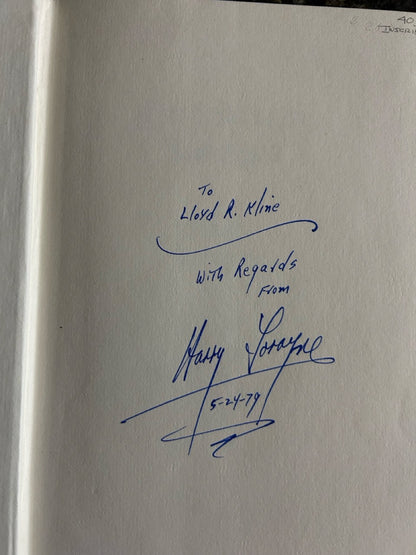 40
To
Lloyd R. Kline
With Regards
From
Harry Lorayne
5-24-79